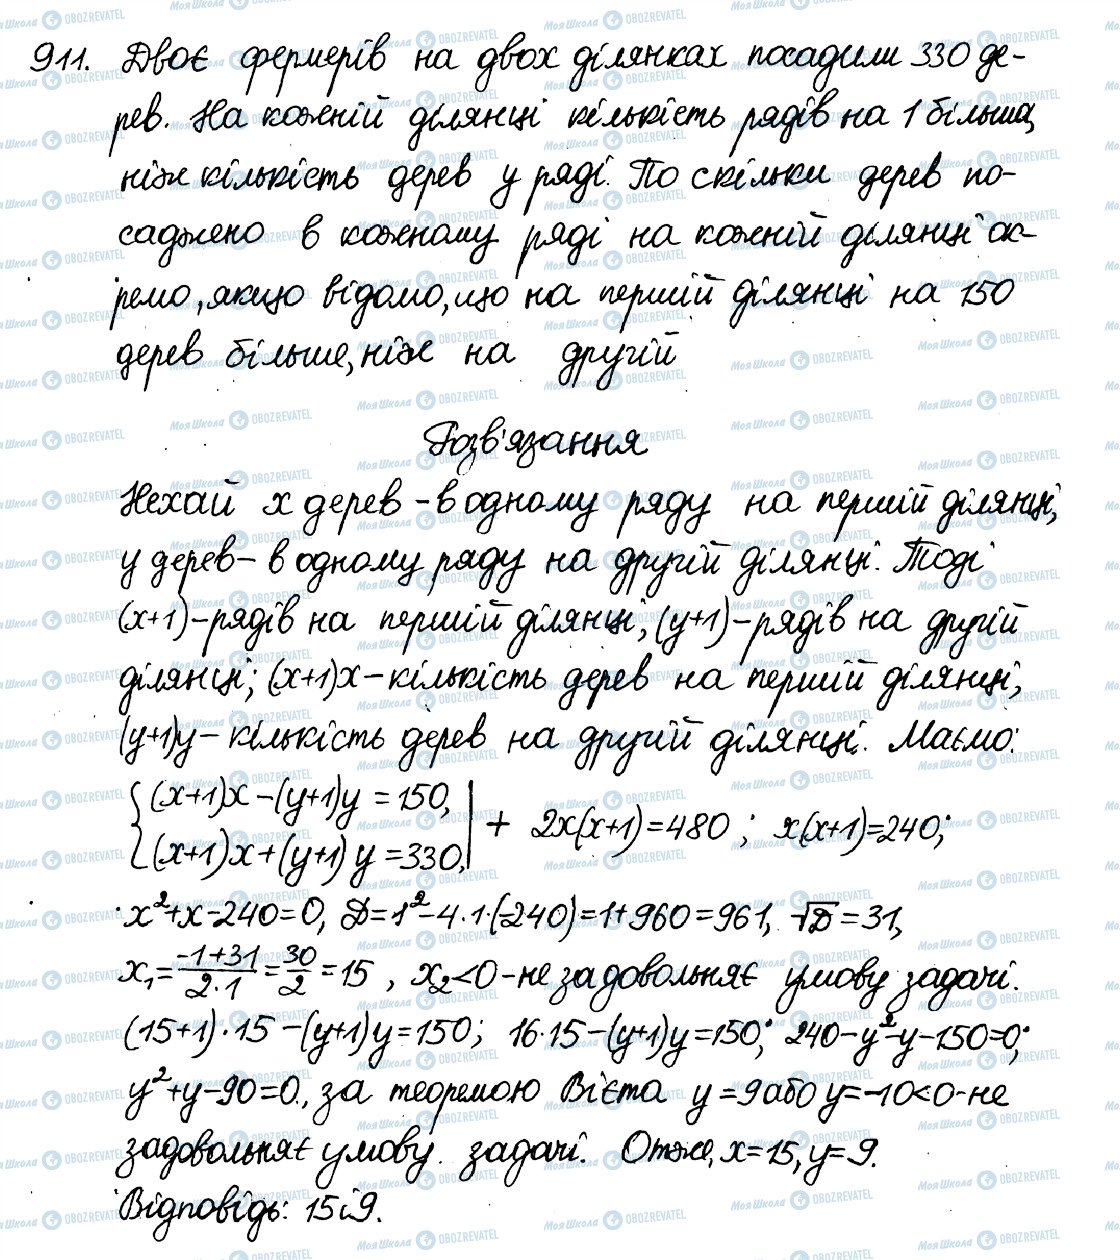 911. Двоє фермерів на двох ділянках посадили 330 де-
рев. На кожній ділянці кількість рядів на 1 більша,
ніж кількість дерев у ряді. По скільки дерев по-
саджено в кожному ряді на кожній ділянці ок-
ремо, якщо відомо, що на першій ділянці на 150
дерев більше, ніж на другій
Розв'язання
Нехай x дерев - в одному ряду на першій ділянці,
y дерев - в одному ряду на другій ділянці. Тоді
(x+1) - рядів на першій ділянці, (y+1) - рядів на другій
ділянці; (x+1)x - кількість дерев на першій ділянці,
(y+1)y - кількість дерев на другій ділянці. Маємо:
{(x+1)x-(y+1)y=150,
(x+1)x+(y+1)y=330,| + 2x(x+1)=480; x(x+1)=240;
x²+x-240=0, D=1²-4·1·(-240)=1+960=961, √D=31,
x₁=(-1+31)/(2·1)=30/2=15, x₂<0 - не задовольняє умову задачі.
(15+1)·15-(y+1)y=150; 16·15-(y+1)y=150; 240-y²-y-150=0;
y²+y-90=0, за теоремою Вієта y=9 або y=-10<0 - не
задовольняє умову задачі. Отже, x=15, y=9.
Відповідь: 15 і 9.